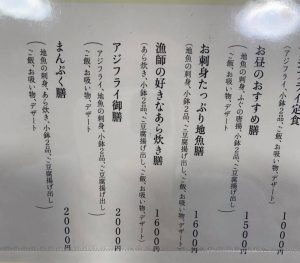 ミックスフライ定食
(アジフライ、小鉢2品、ご飯、お吸い物) 1000円
お昼のおすすめ膳
(地魚の刺身、ふぐの唐揚、小鉢2品、ご豆腐揚げ出し、ご飯、お吸い物、デザート) 1500円
お刺身たっぷり地魚膳
(地魚の刺身、小鉢2品、ご豆腐揚げ出し、ご飯、お吸い物、デザート) 1600円
漁師の好きなあら炊き膳
(あら炊き、小鉢2品、ご豆腐揚げ出し、ご飯、お吸い物、デザート) 1600円
アジフライ御膳
(アジフライ、地魚の刺身、小鉢2品、ご豆腐揚げ出し
ご飯、お吸い物、デザート) 2000円
まんぷく膳
(地魚の刺身、あら炊き、小鉢2品、ご豆腐揚げ出し
ご飯、お吸い物、デザート) 2000円